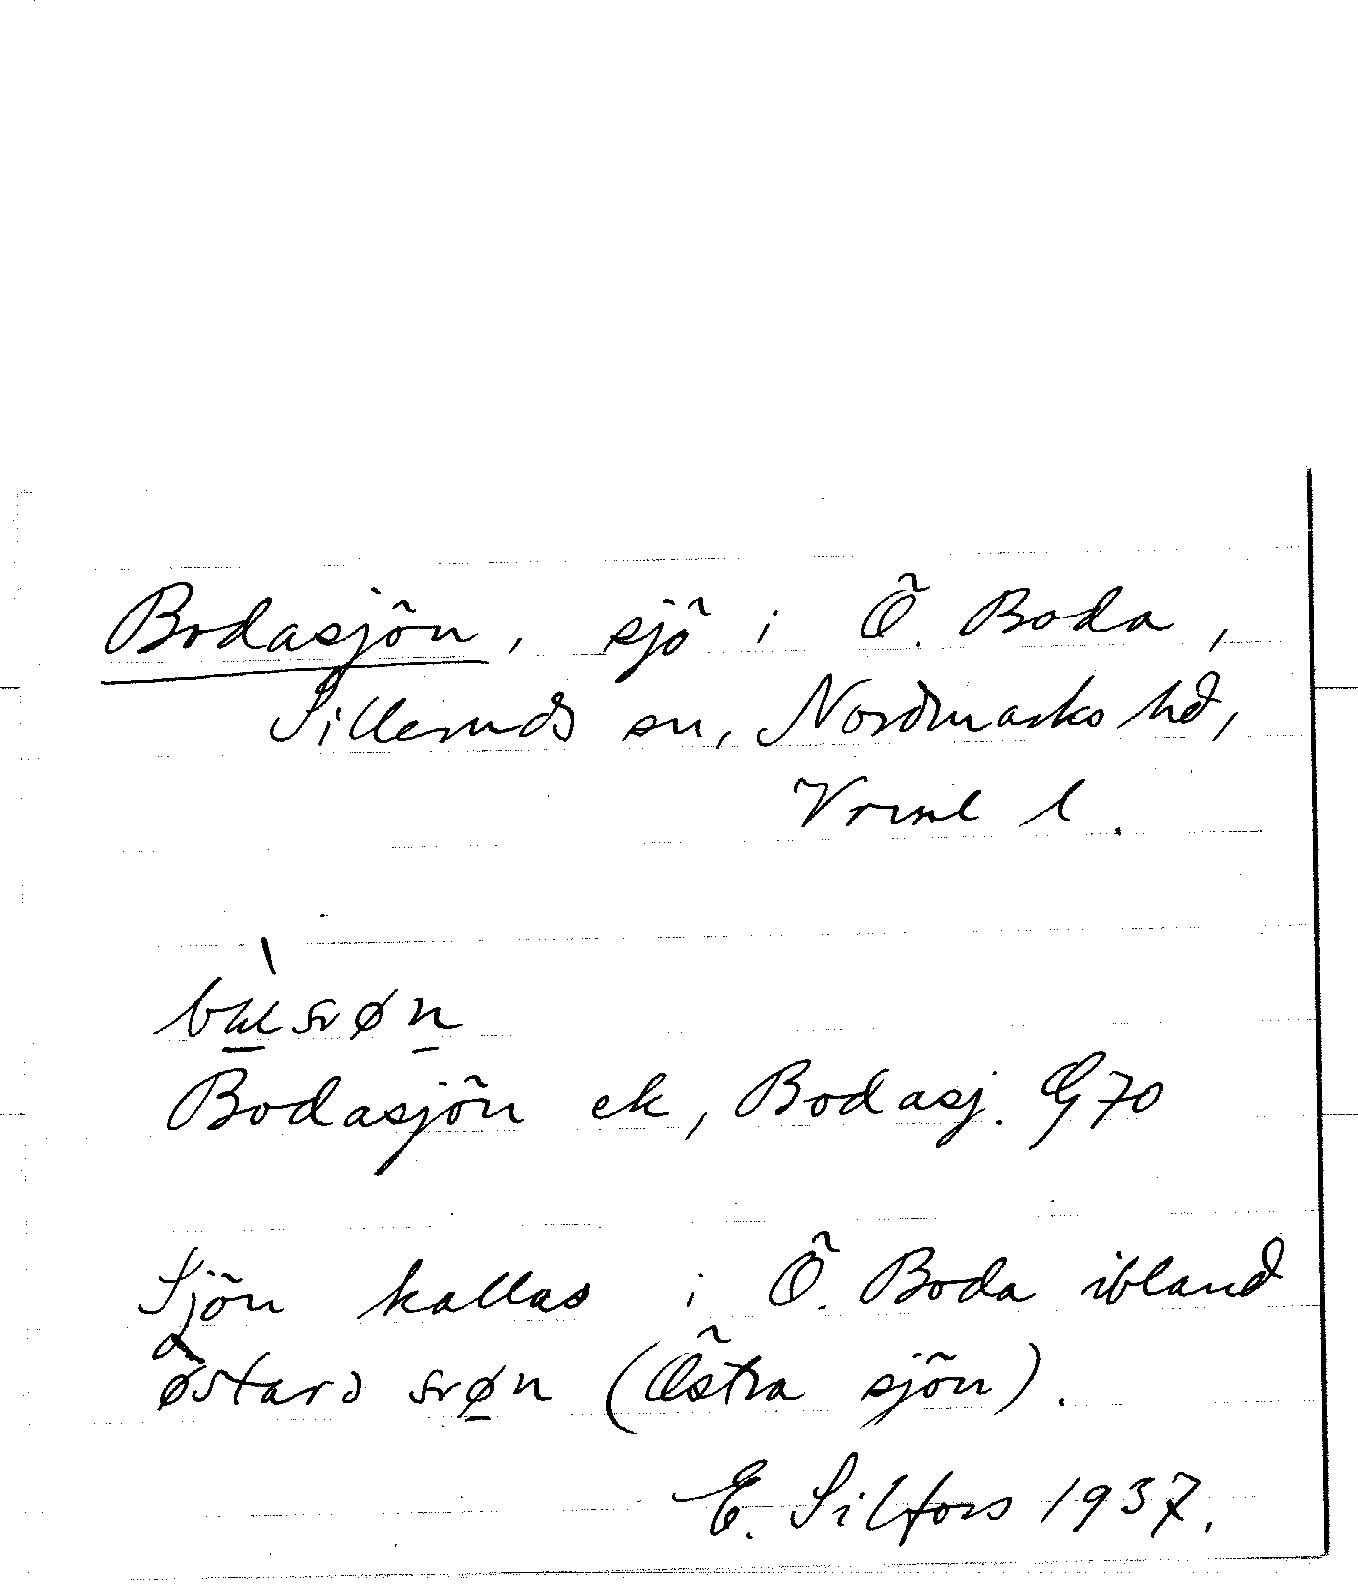 Bodasjön, sjö i Ö. Boda,
Silleruds sn, Nordmarks hd,
Vrml l.
Bodasjön ek, Bodasj. G70
Sjön kallas i Ö. Boda ibland
(Östra sjön).
E. Silfors 1937.